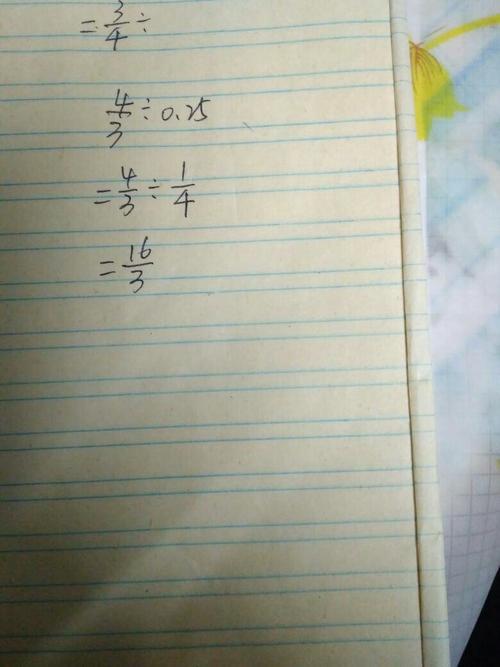 = 3/4 ÷
4/3 ÷ 0.25
= 4/3 ÷ 1/4
= 16/3